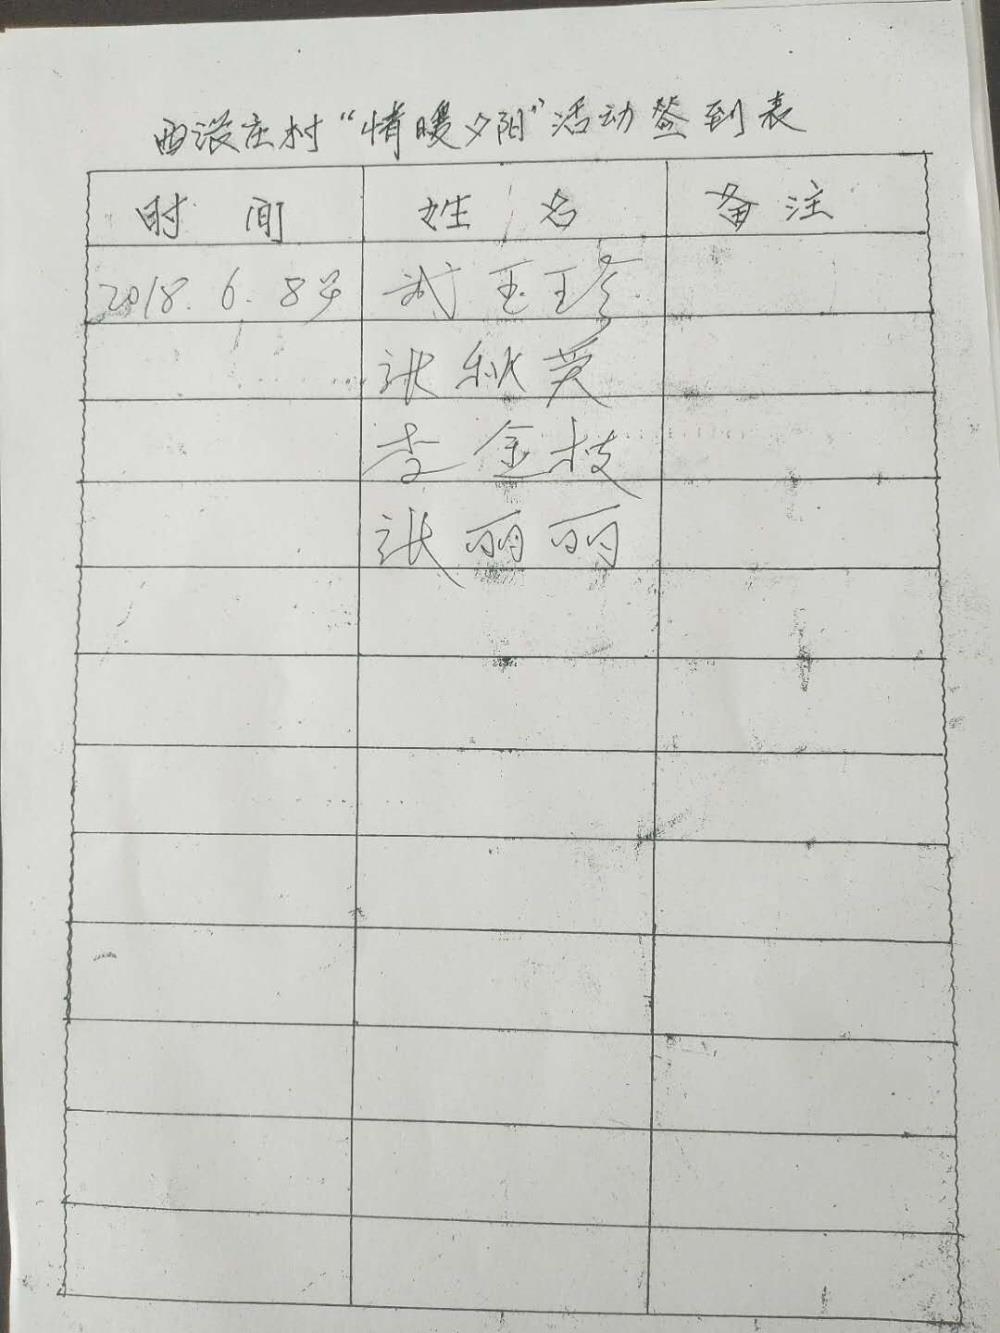 西滚庄村“情暖夕阳”活动签到表
时间 姓名 备注
2018.6.8号 武玉珍
张秋英
李金枝
张丽丽